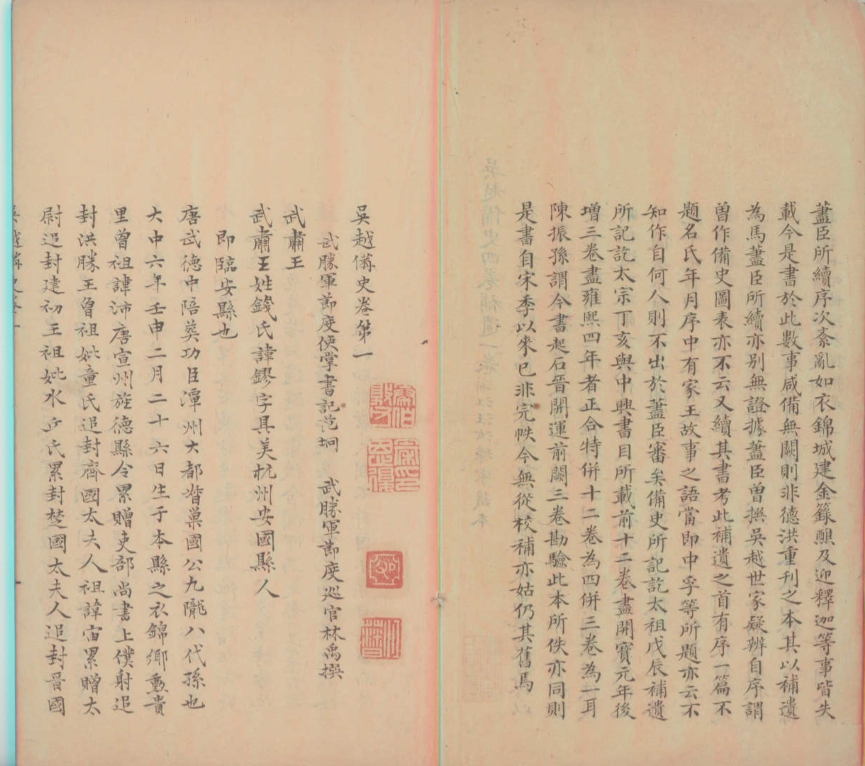 藎臣所續序次紊亂如衣錦城建金籙醮及迎釋迦等事皆失
載今是書於此數事咸備無闕則非德洪重刊之本其以補遺
為馬藎臣所續亦別無證據藎臣曽撰吳越世家疑辨自序謂
曽作備史圖表亦不云又續其書考此補遺之首有序一篇不
題名氏年月序中有家王故事之語當即中孚等所題亦云不
知作自何人則不出於藎臣審矣備史所記訖太祖戊辰補遺
所記訖太宗丁亥與中興書目所載前十二卷盡開寳元年後
增三卷盡雍熙四年者正合特併十二卷為四併三卷為一耳
陳振孫謂今書起石晉開運前闕三卷勘驗此本所佚亦同則
是書自宋季以來已非完帙今無從校補亦姑仍其舊焉
吳越備史卷第一
武勝軍節度使掌書記范坰 武勝軍節度巡官林禹撰
武肅王
武肅王姓錢氏諱鏐字具美杭州安國縣人
即臨安縣也
唐武德中陪葬功臣潭州大都督巢國公九隴八代孫也
大中六年壬申二月二十六日生于本縣之衣錦鄉勳貴
里曽祖諱沛唐宣州旌德縣令累贈吏部尚書上僕射追
封洪勝王曽祖妣童氏追封齊國太夫人祖諱宙累贈太
尉追封建初王祖妣水丘氏累封楚國太夫人追封晉國